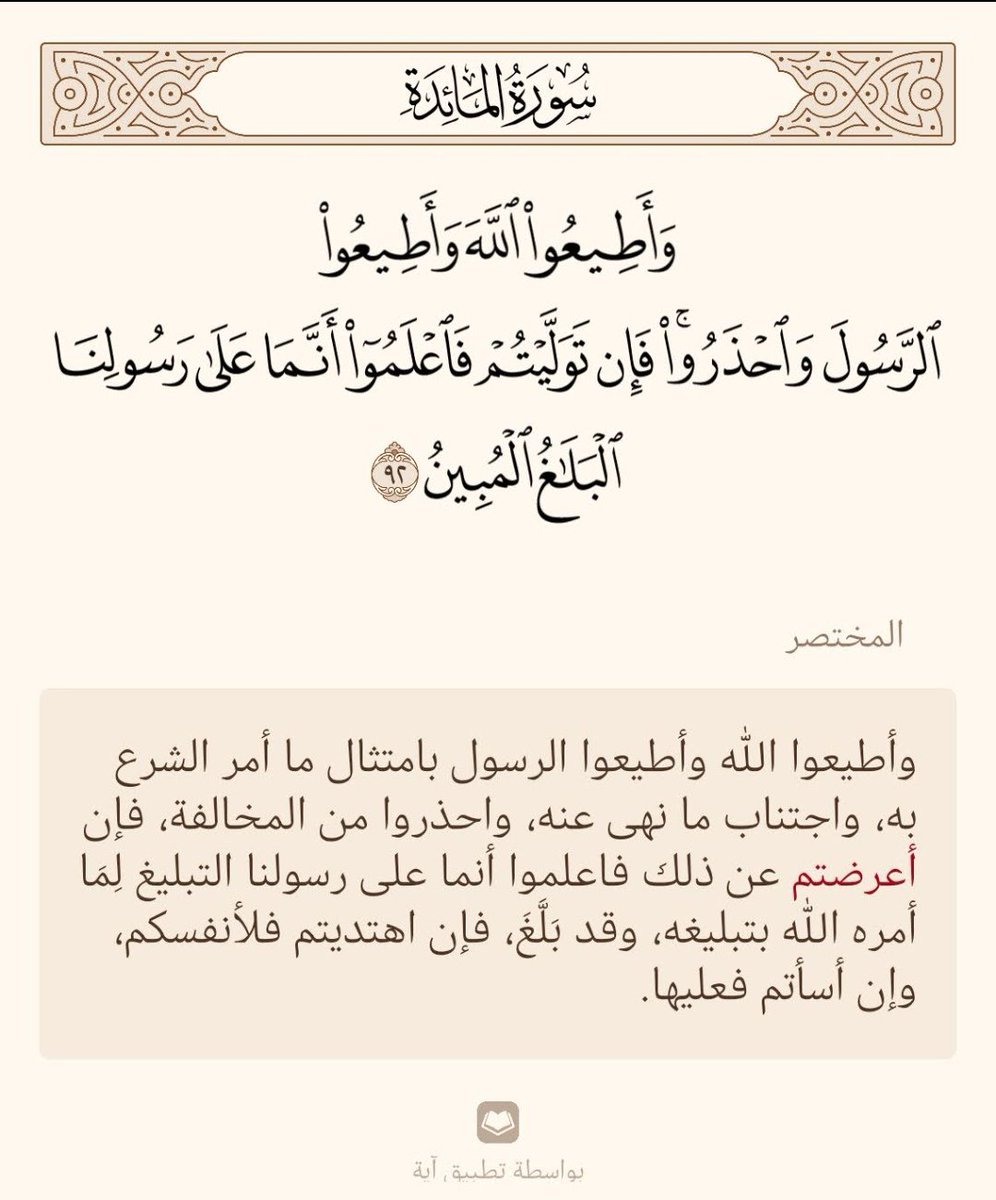 سُورَةُ المَائِدَةِ
وَأَطِيعُواْ ٱللَّهَ وَأَطِيعُواْ
ٱلرَّسُولَ وَٱحۡذَرُواْۚ فَإِن تَوَلَّيۡتُمۡ فَٱعۡلَمُوٓاْ أَنَّمَا عَلَىٰ رَسُولِنَا
ٱلۡبَلَٰغُ ٱلۡمُبِينُ ٩٢
المختصر
وأطيعوا الله وأطيعوا الرسول بامتثال ما أمر الشرع
به، واجتناب ما نهى عنه، واحذروا من المخالفة، فإن
أعرضتم عن ذلك فاعلموا أنما على رسولنا التبليغ لِمَا
أمره الله بتبليغه، وقد بَلَّغَ، فإن اهتديتم فلأنفسكم،
وإن أسأتم فعليها.
بواسطة تطبيق آية